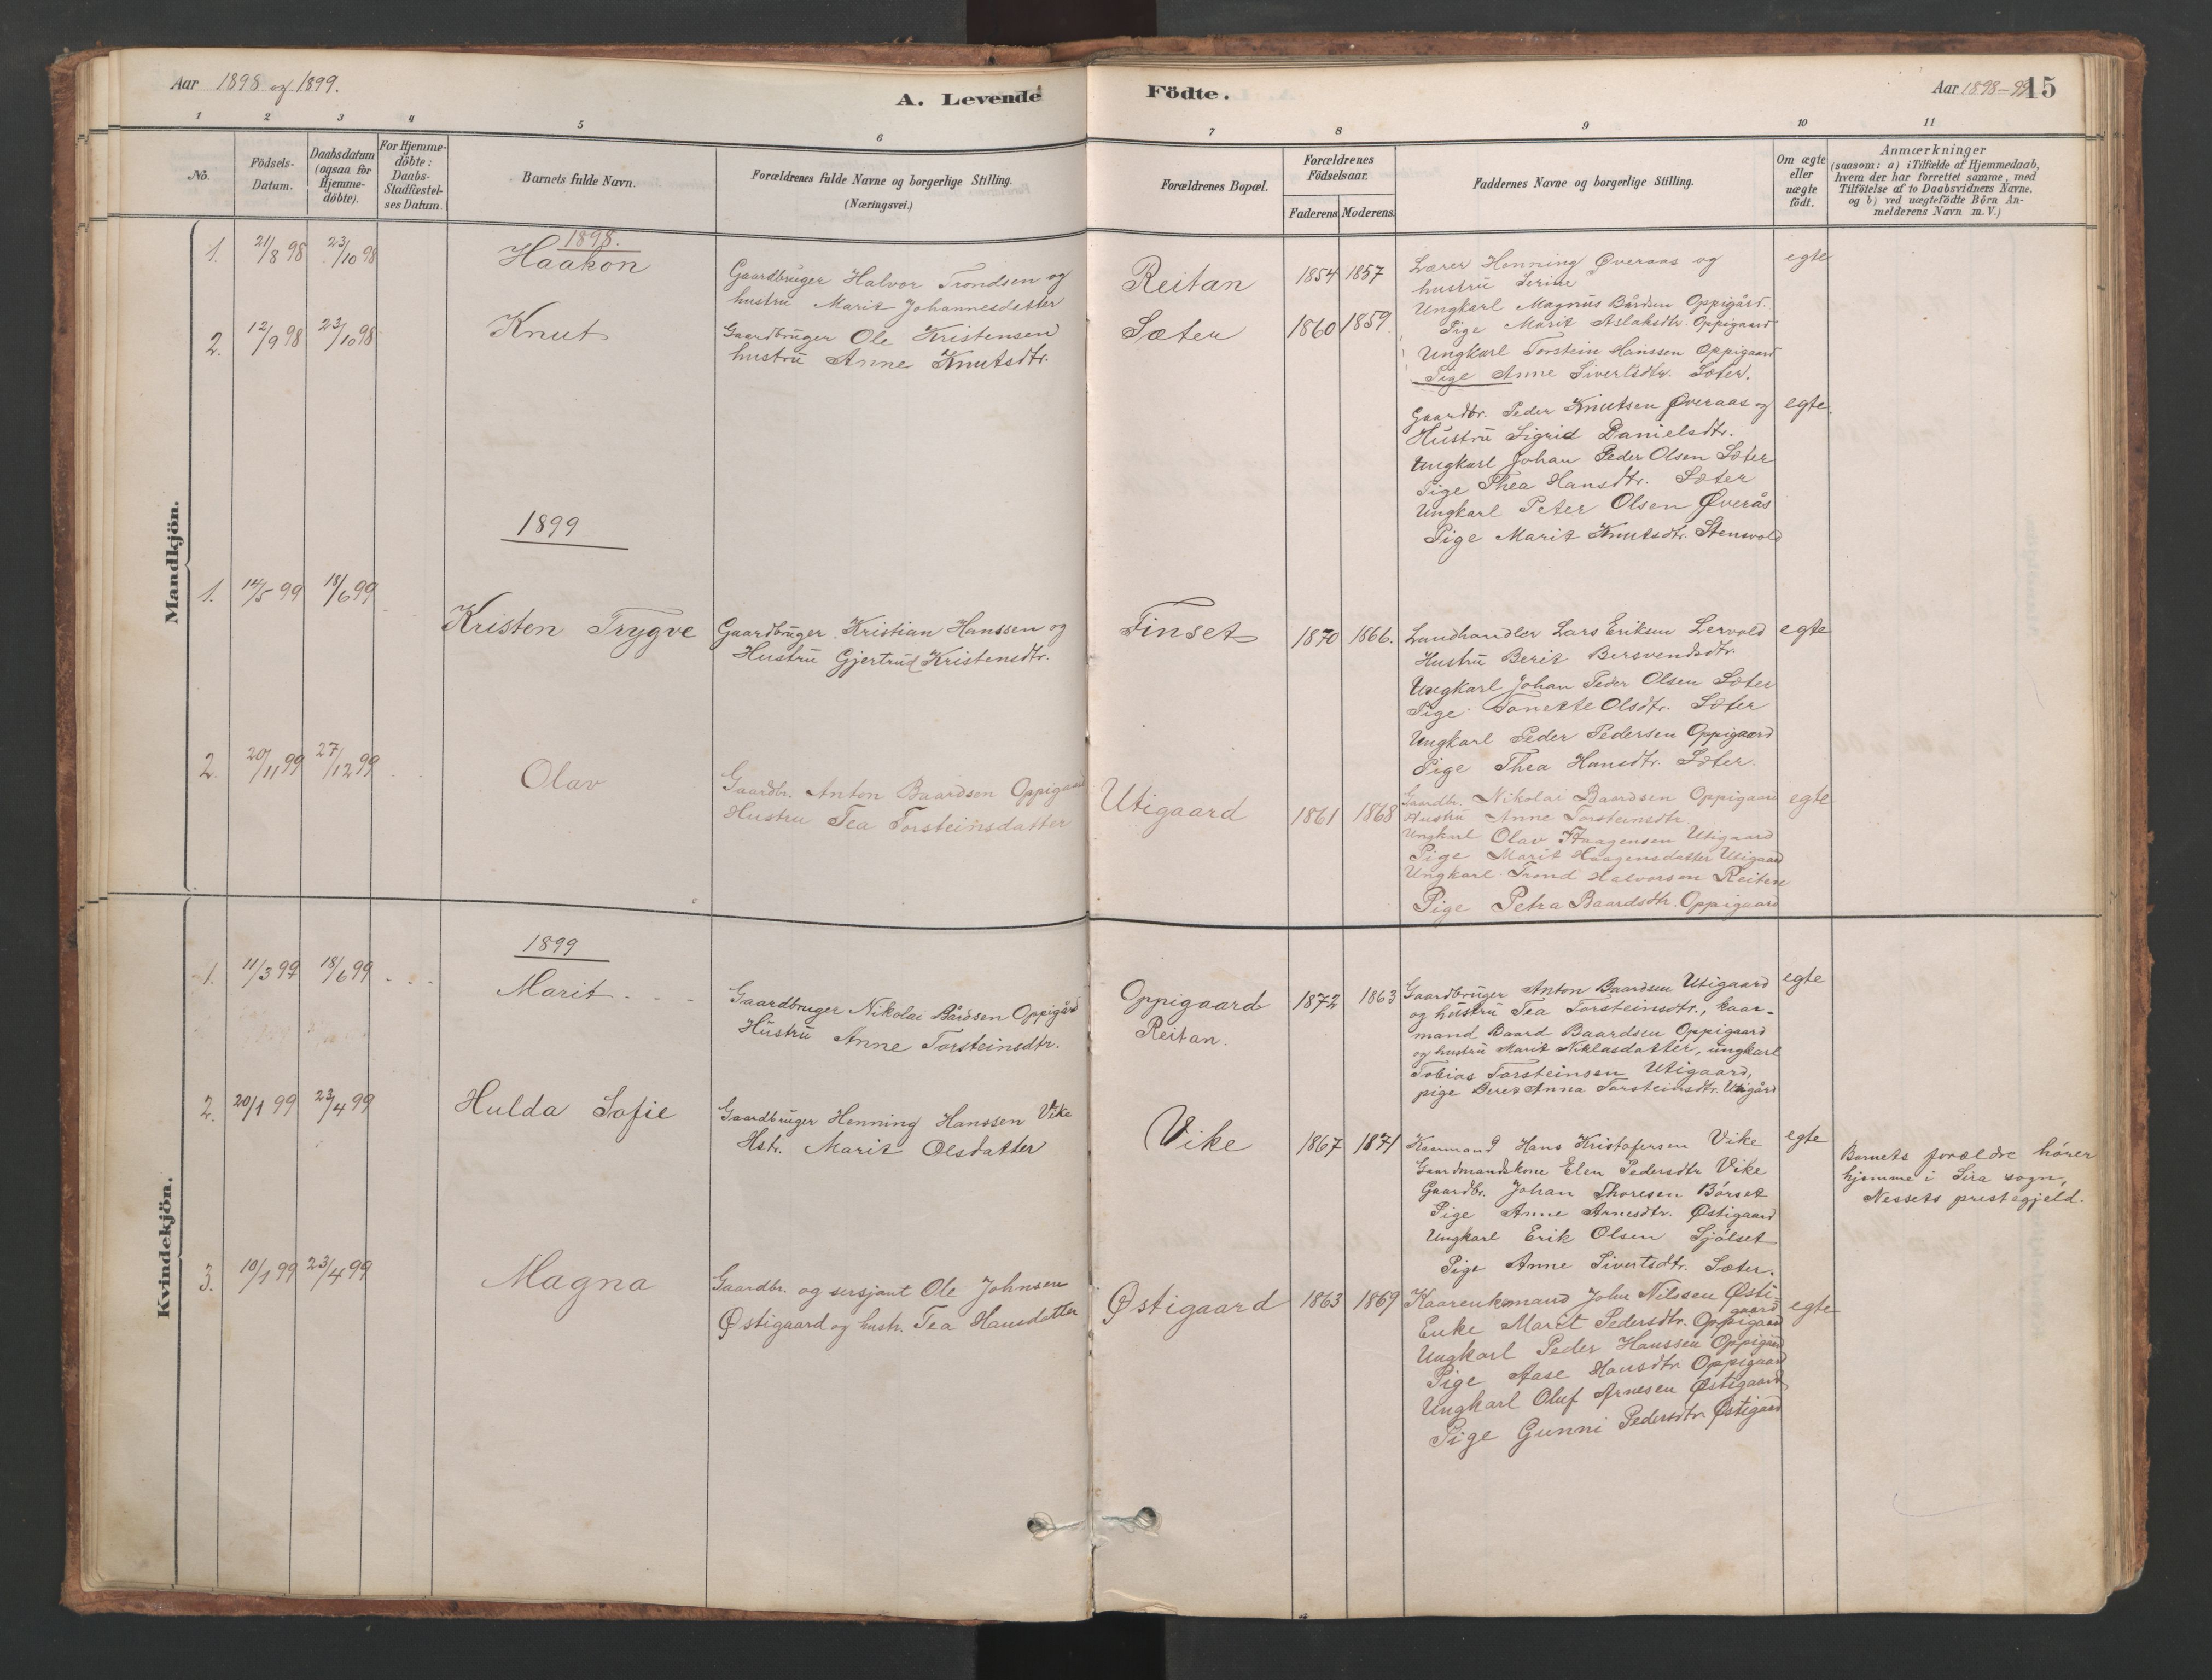 Aar 1898 og 1899.
A. Levende Födte.
Aar 1898-99
15
1 2 3 4 5 6 7 8 9 10 11
No.
Födsels-
Datum.
Daabsdatum
(ogsaa for
Hjemme-
döbte).
For Hjemme-
döbte:
Daabs-
Stadfæstel-
ses Datum.
Barnets fulde Navn.
Forældrenes fulde Navne og borgerlige Stilling.
(Næringsvei.)
Forældrenes Bopæl.
Forældrenes
Födselsaar.
Faderens.
Moderens.
Faddernes Navne og borgerlige Stilling.
Om ægte
eller
uægte
födt.
Anmærkninger
(saasom: a) i Tilfælde af Hjemmedaab,
hvem der har forrettet samme, med
Tilföielse af to Daabsvidners Navne,
og b) ved uægtefödte Börn An-
melderens Navn m.V.)
Mandkjön.
1898.
1. 21/8 98 23/10 98
Haakon
Gaardbruger Halvor Trondsen og
hustru Marit Johannesdatter
Reitan 1854 1857
Lærer Henning Øveraas og
hustru Serine
Ungkarl Magnus Bårdsen Oppigård
Pige Marit Aslaksdtr. Oppigaard
Ungkarl Torstein Hanssen Oppigaard
Pige Anne Sivertsdtr. Sæter.
egte
2. 12/9 98 23/10 98
Knut
Gaardbruger Ole Kristensen
hustru Anne Knutsdtr.
Sæter 1860 1859.
Gaardbr. Peder Knutsen Øveraas og
Hustru Sigrid Danielsdtr.
Ungkarl Johan Peder Olsen Sæter
Pige Thea Hansdtr. Sæter
Ungkarl Peter Olsen Øverås
Pige Marit Knutsdtr. Stensvold
egte.
1899
1. 14/5 99 18/6 99
Kristen Trygve
Gaardbruger Kristian Hanssen og
Hustru Gjertrud Kristensdtr.
Finset 1870 1866.
Landhandler Lars Eriksen Lervold
Hustru Berit Bersvendsdtr.
Ungkarl Johan Peder Olsen Sæter
Pige Tanette Olsdtr. Sæter
Ungkarl Peder Pedersen Oppigaard
Pige Thea Hansdtr. Sæter.
egte
2. 20/11 99 27/12 99
Olav
Gaardbr. Anton Baardsen Oppigaard
Hustru Tea Torsteinsdatter
Utigaard 1861 1868
Gaardbr. Nikolai Baardsen Oppigaard
Hustru Anne Torsteinsdtr.
Ungkarl Olav Haagensen Utigaard
Pige Marit Haagensdatter Utigaard
Ungkarl Trond Halvorsen Reiten
Pige Petra Baardsdtr. Oppigaard
egte
Kvindekjön.
1899
1. 11/3 99 18/6 99
Marit
Gaardbruger Nikolai Bårdsen Oppigård
Hustru Anne Torsteinsdtr.
Oppigaard
Reitan.
1872 1863
Gaardbruger Anton Baardsen Utigaard
og hustru Tea Torsteinsdtr., kaar-
mand Baard Baardsen Oppigaard
og hustru Marit Niklasdatter, ungkarl
Tobias Torsteinsen Utigaard,
pige Beret Anna Torsteinsdtr. Utigård
egte
2. 20/1 99 23/4 99
Hulda Sofie
Gaardbruger Henning Hanssen Vike
Hstr. Marit Olsdatter
Vike 1867 1871
Kaarmand Hans Kristofersen Vike
Gaardmandskone Elen Pedersdtr Vike
Gaardbr. Johan Thoresen Börset
Pige Anne Arnesdtr. Østigaard
Ungkarl Erik Olsen Sjölset
Pige Anne Sivertsdtr. Sæter.
egte
Barnets forældre hörer
hjemme i Sira sogn,
Nessets prestegjeld.
3. 10/1 99 23/4 99
Magna
Gaardbr. og sersjant Ole Johnsen
Østigaard og hustr. Tea Hansdatter
Østigaard 1863 1869
Kaarenkemand John Nilssen Østi-
gaard
Enke Maret Pedersdtr. Oppigaard
Ungkarl Peder Hanssen Oppigaard
Pige Aase Hansdtr Oppigaard
Ungkarl Oluf Arnesen Østigaard
Pige Gunni Pedersdtr. Østigaard
egte